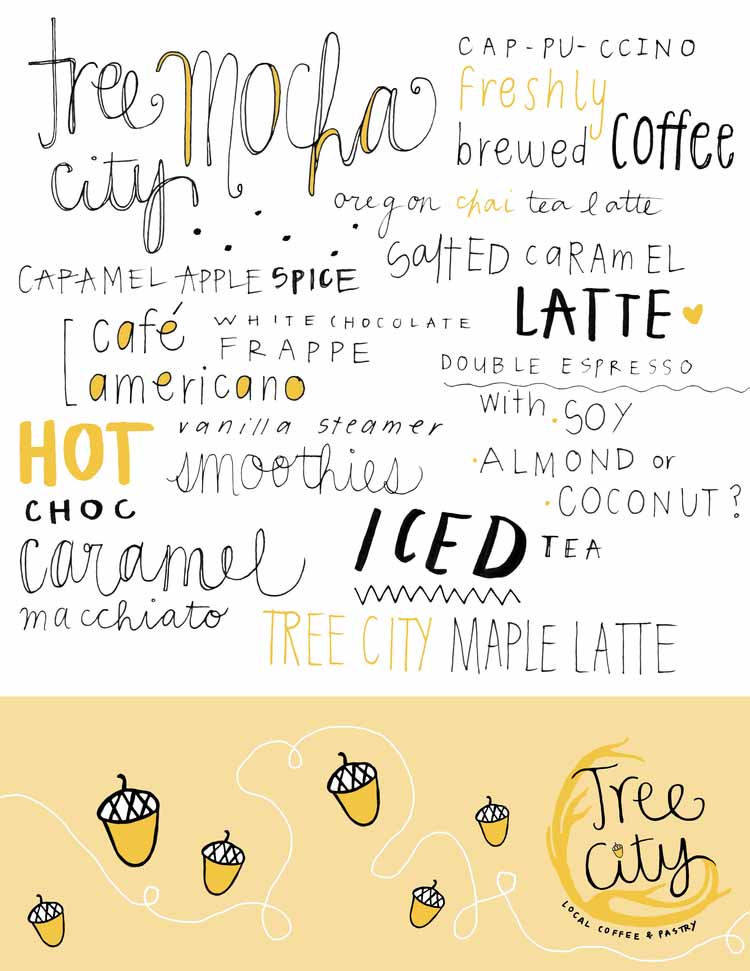 tree mocha
city
CAP-PU-CCINO
freshly
brewed coffee
oregon chai tea latte
CARAMEL APPLE SPICE
salTED CARAMEL
LATTE
[ café
americano
WHITE CHOCOLATE
FRAPPE
DOUBLE ESPRESSO
with SOY
ALMOND or
COCONUT?
HOT
CHOC
vanilla steamer
smoothies
caramel
macchiato
ICED TEA
TREE CITY MAPLE LATTE
Tree
city
LOCAL COFFEE & PASTRY